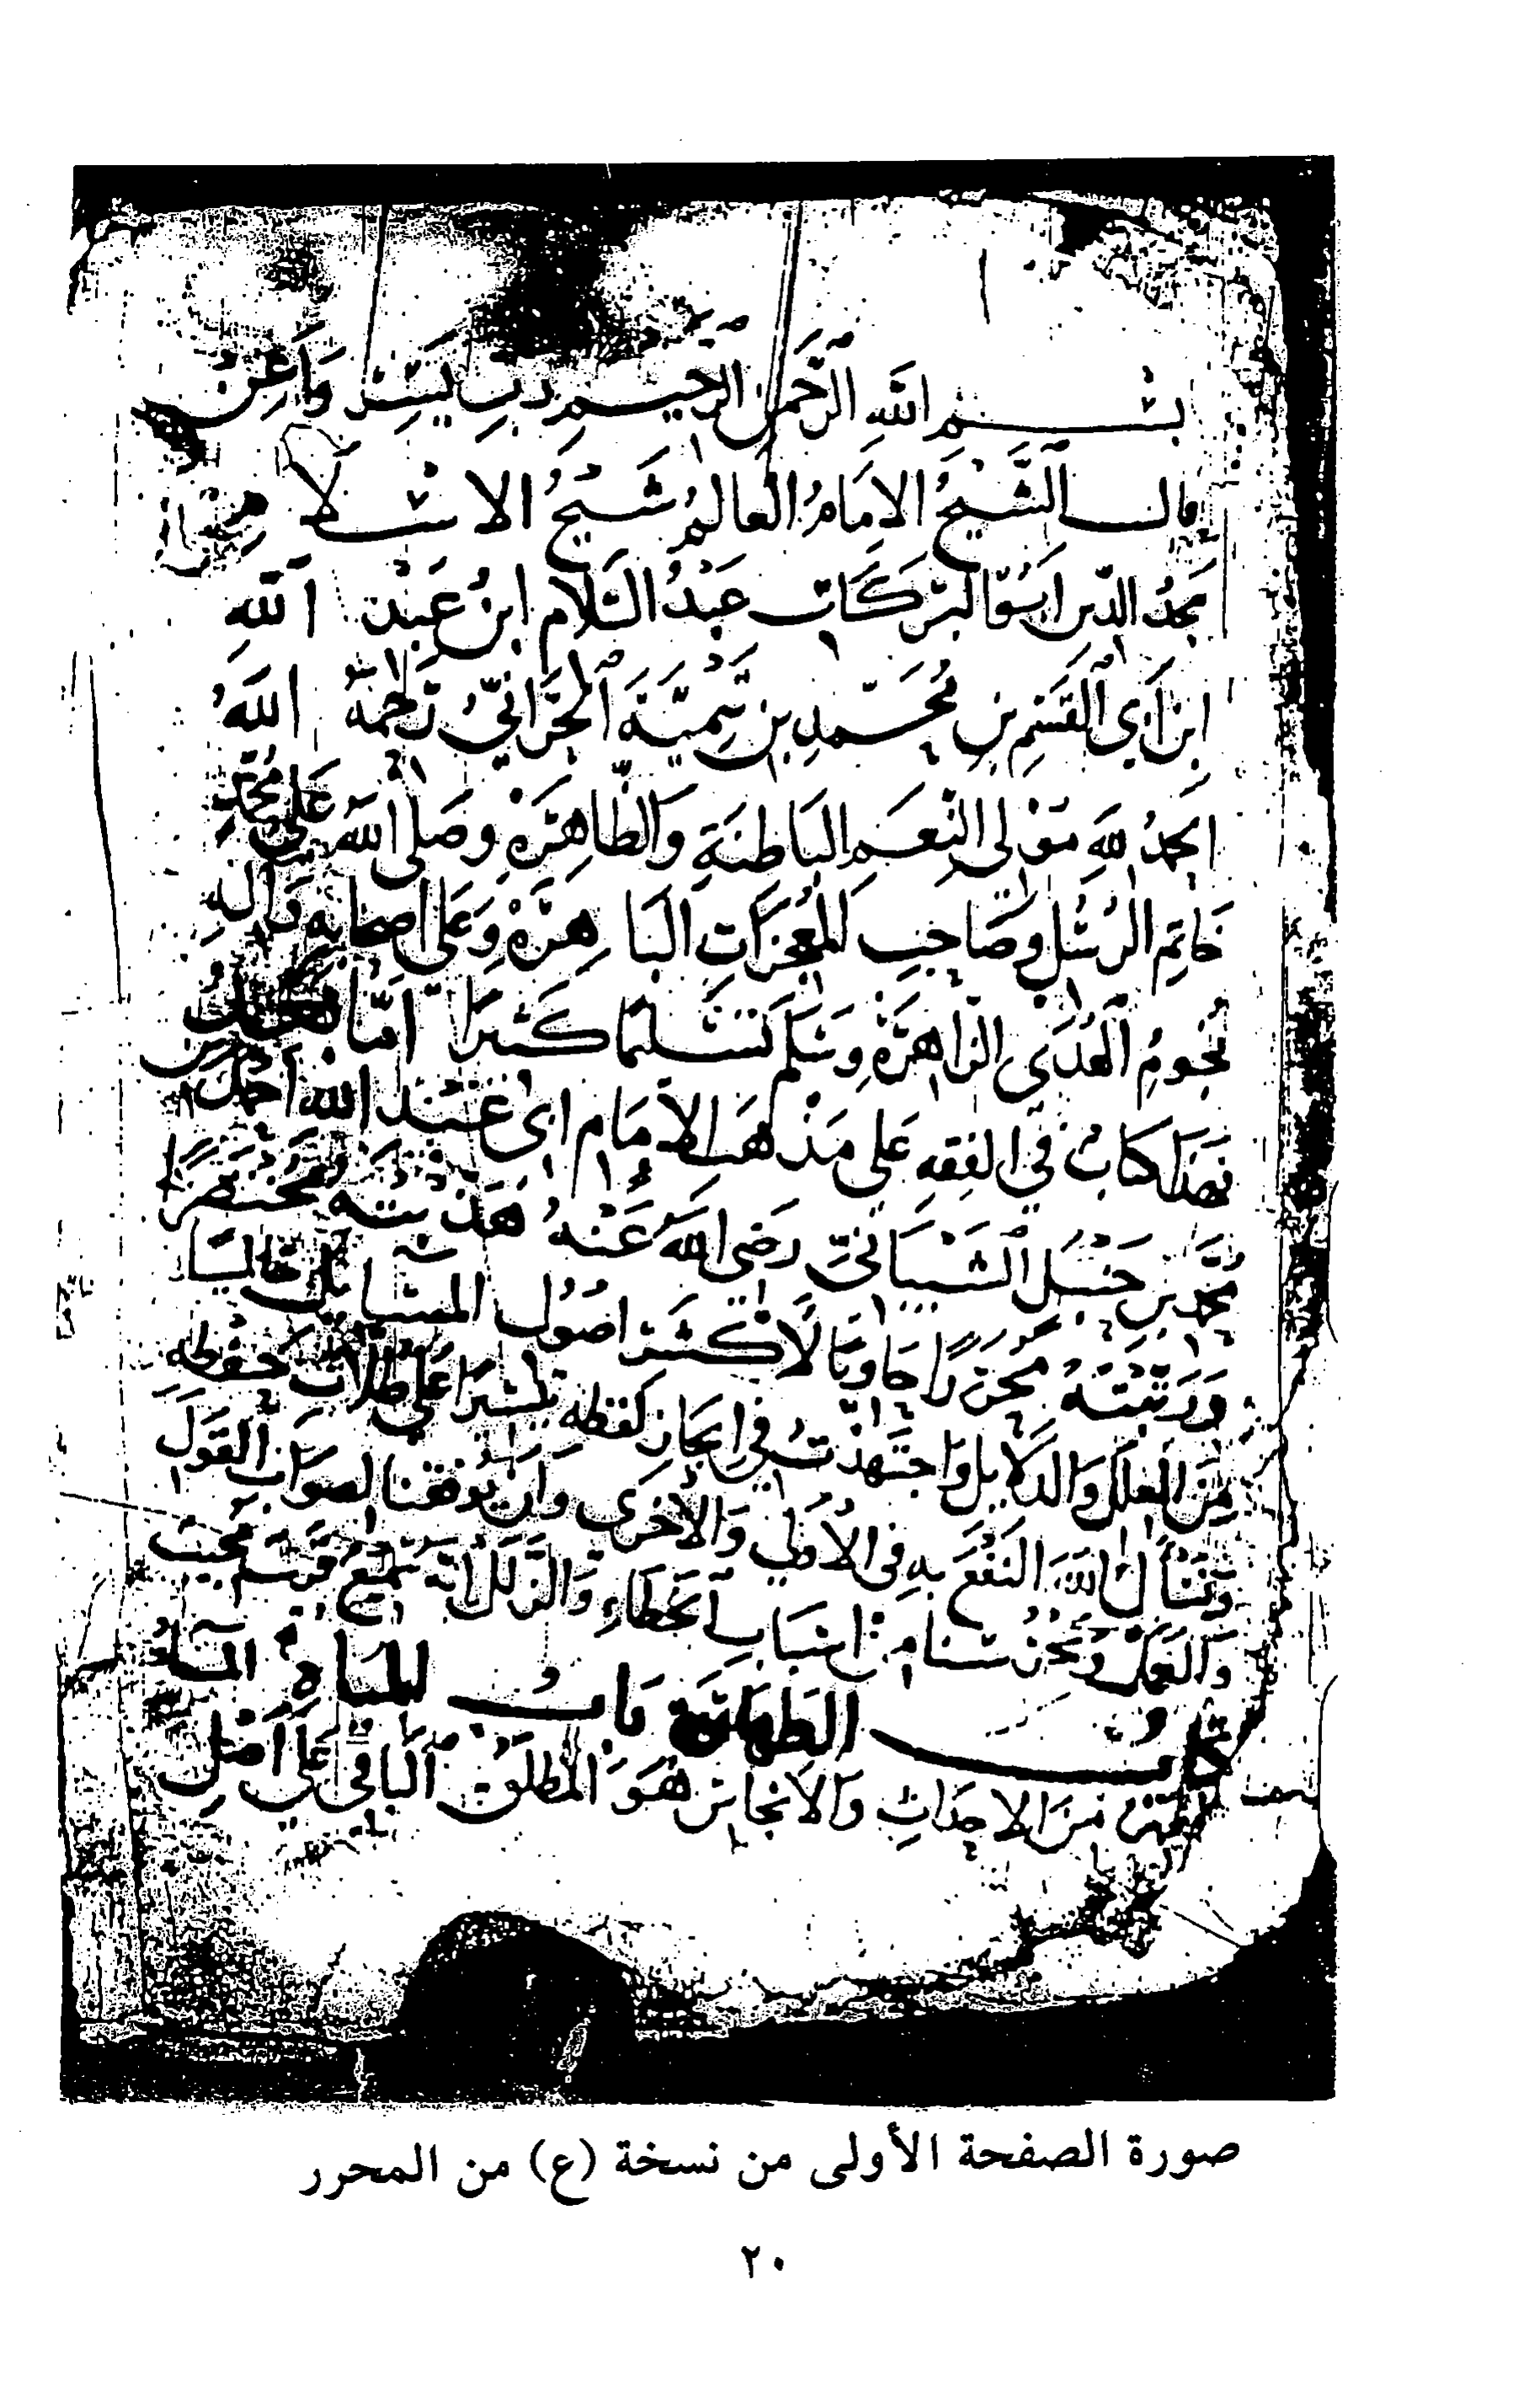 بسم الله الرحمن الرحيم رب يسر وأعن
قال الشيخ الامام العالم شيخ الاسلام
مجد الدين ابو البركات عبد السلام ابن عبد الله
ابن أبي القسم بن محمد بن تيمية الحراني رحمه الله
الحمد لله مولى النعم الباطنة والظاهرة وصلى الله على محمد
خاتم الرسل وصاحب المعجزات الباهرة وعلى اصحابه وآله
نجوم الهدى الزاهرة وسلم تسليما كثيرا أما بعد
فهذا كتاب في الفقه على مذهب الامام ابي عبد الله احمد بن
محمد بن حنبل الشيباني رضي الله عنه هذبته مختصرا
ورتبته محررا حاويا لأكثر اصول المسائل خاليا
من العلل والدلايل واجتهدت في ايجاز لفظه تيسيرا على طلاب حفظه
ونسأل الله النفع به في الأولى والأخرى وان يوفقنا لصواب القول
والعمل اسباب الخطاء والزلل انه سميع قريب مجيب
كتاب الطهارة باب المياه الماء
من الاحداث والانجاس هو المطلق الباقي على أصل
صورة الصفحة الأولى من نسخة (ع) من المحرر
٢٠